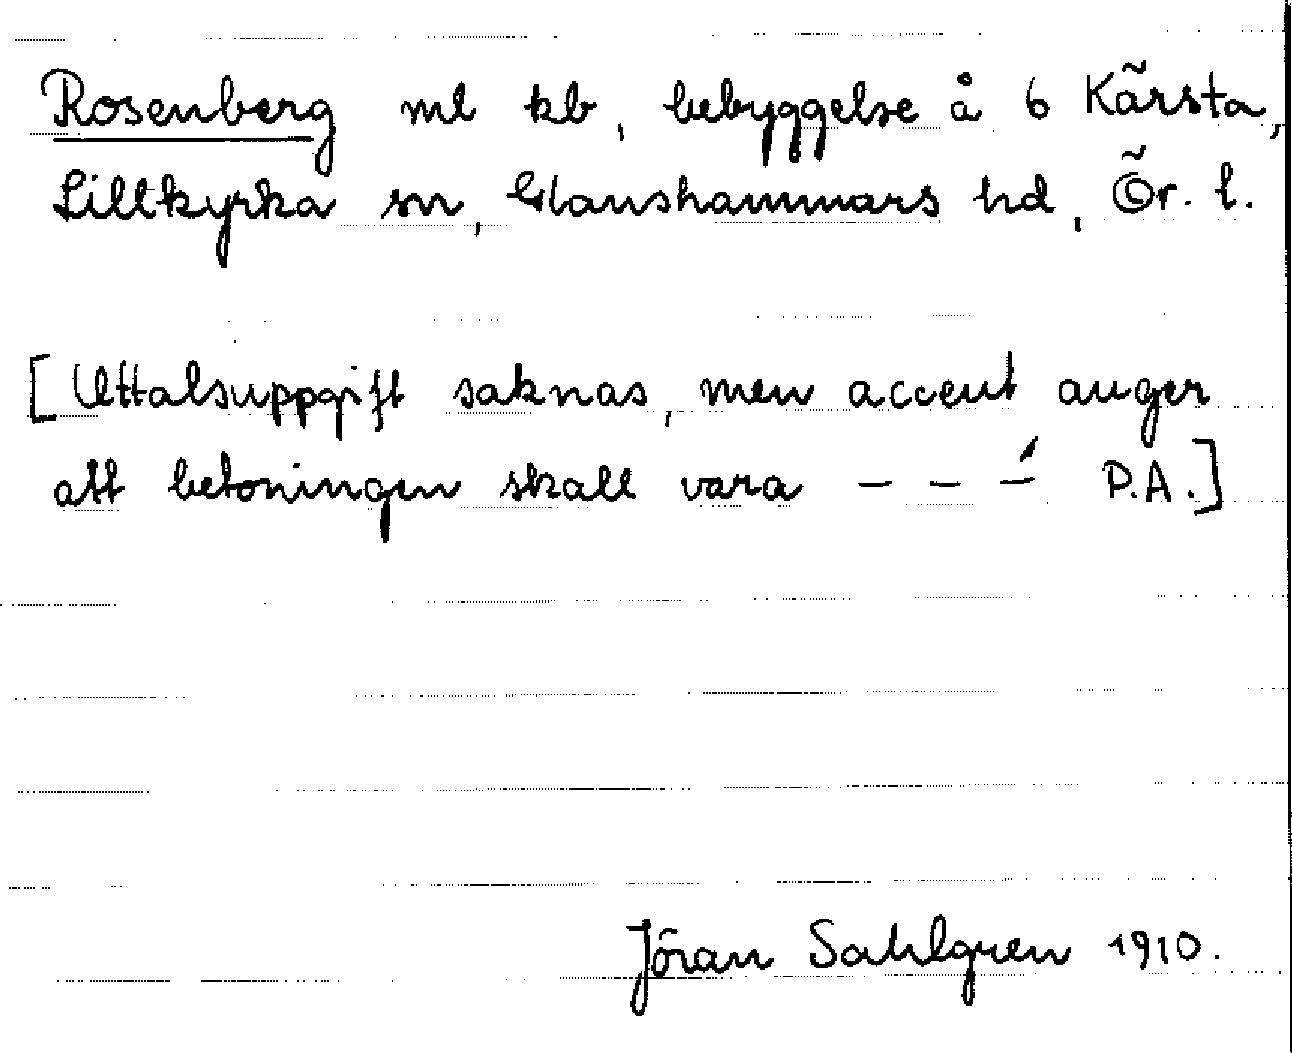 Rosenberg ml kb, bebyggelse å 6 Kärsta,
Lillkyrka sn, Glanshammars hd, Ör. l.
[Uttalsuppgift saknas, men accent anger
att betoningen skall vara – – –́ P.A.]
Jöran Sahlgren 1910.